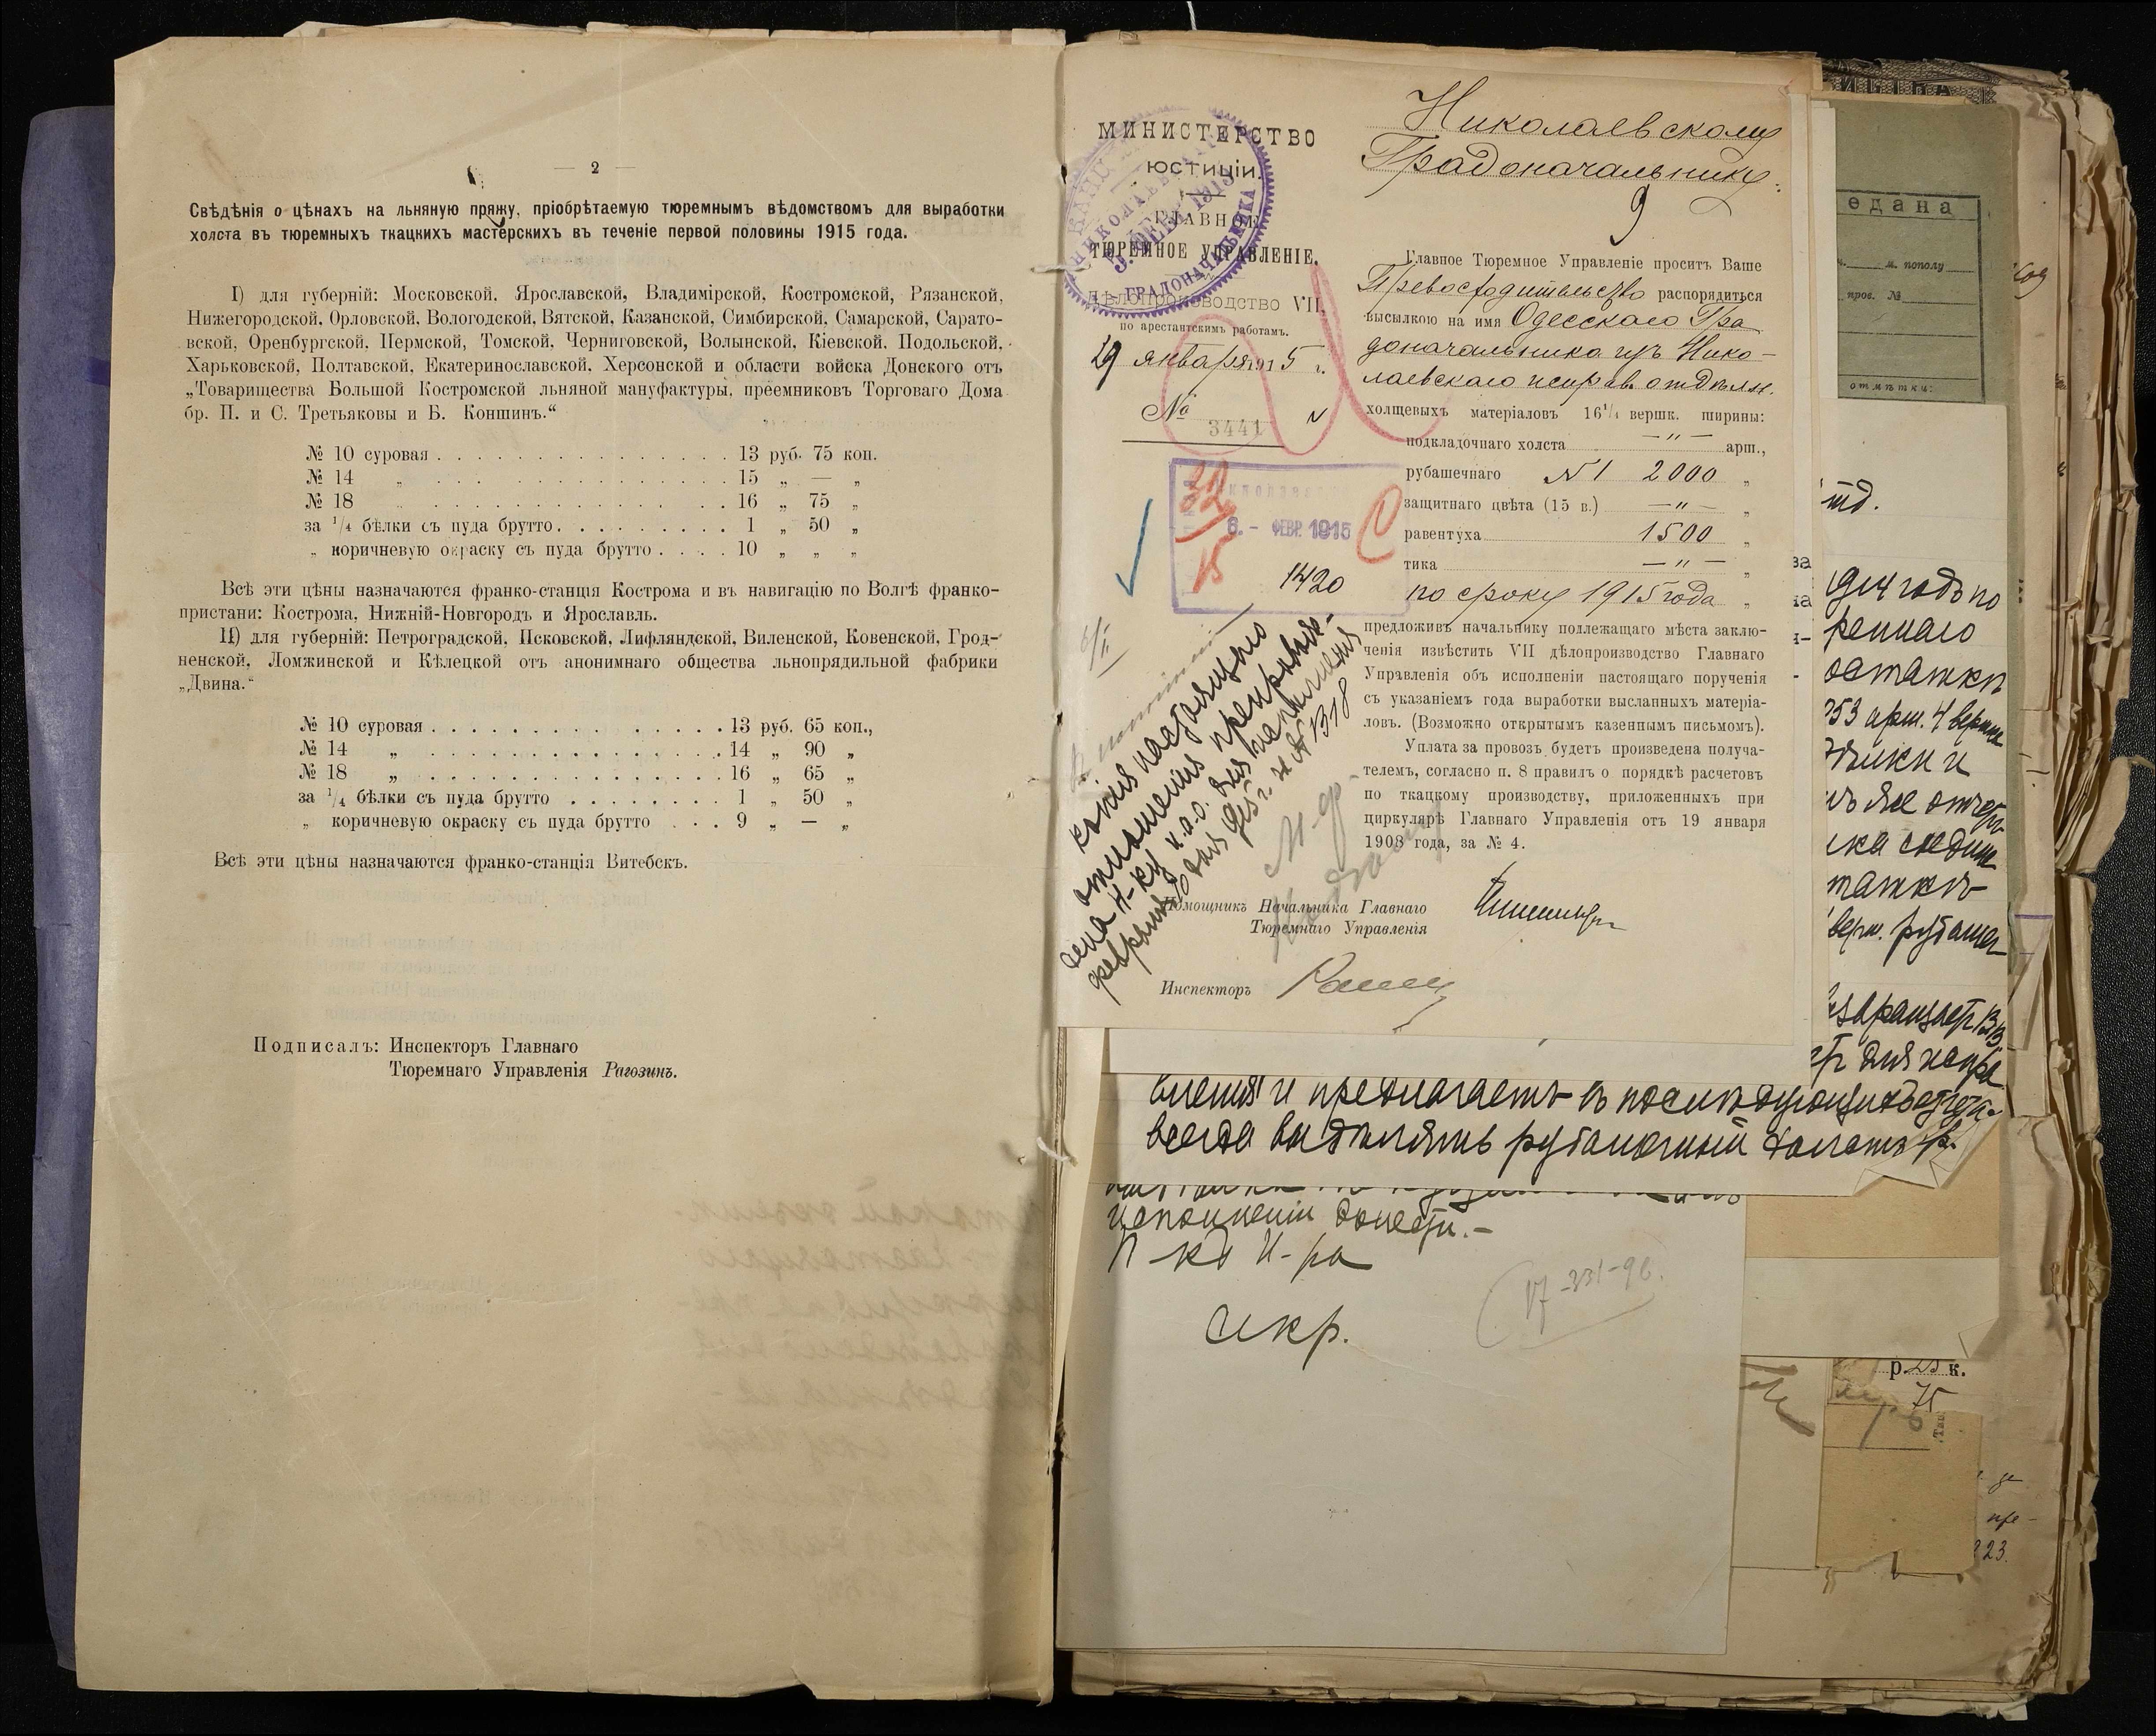 — 2 —
Свѣдѣнія о цѣнахъ на льняную пряжу, пріобрѣтаемую тюремнымъ вѣдомствомъ для выработки
холста въ тюремныхъ ткацкихъ мастерскихъ въ теченіе первой половины 1915 года.
I) для губерній: Московской, Ярославской, Владимірской, Костромской, Рязанской,
Нижегородской, Орловской, Вологодской, Вятской, Казанской, Симбирской, Самарской, Сарато-
вской, Оренбургской, Пермской, Томской, Черниговской, Волынской, Кіевской, Подольской,
Харьковской, Полтавской, Екатеринославской, Херсонской и области войска Донского отъ
„Товарищества Большой Костромской льняной мануфактуры, преемниковъ Торговаго Дома
бр. П. и С. Третьяковы и Б. Коншинъ.“
№ 10 суровая . . . . . . . . . . . . . . . 13 руб. 75 коп.
№ 14 „ . . . . . . . . . . . . . . . 15 „ — „
№ 18 „ . . . . . . . . . . . . . . . 16 „ 75 „
за 1/4 бѣлки съ пуда брутто . . . . . . . . 1 „ 50 „
„ коричневую окраску съ пуда брутто . . . . 10 „ „ „
Всѣ эти цѣны назначаются франко-станція Кострома и въ навигацію по Волгѣ франко-
пристани: Кострома, Нижній-Новгородъ и Ярославль.
II) для губерній: Петроградской, Псковской, Лифляндской, Виленской, Ковенской, Грод-
ненской, Ломжинской и Кѣлецкой отъ анонимнаго общества льнопрядильной фабрики
„Двина.“
№ 10 суровая . . . . . . . . . . . . . . . 13 руб. 65 коп.,
№ 14 „ . . . . . . . . . . . . . . . 14 „ 90 „
№ 18 „ . . . . . . . . . . . . . . . 16 „ 65 „
за 1/4 бѣлки съ пуда брутто . . . . . . . . 1 „ 50 „
„ коричневую окраску съ пуда брутто . . . 9 „ — „
Всѣ эти цѣны назначаются франко-станція Витебскъ.
Подписалъ: Инспекторъ Главнаго
Тюремнаго Управленія Рагозинъ.
МИНИСТЕРСТВО
ЮСТИЦІИ.
ГЛАВНОЕ
ТЮРЕМНОЕ УПРАВЛЕНІЕ.
Дѣлопроизводство VII,
по арестантскимъ работамъ.
29 января 1915 г.
№ 3441
ГРАДОНАЧАЛЬНИКА
32
15
6. - ФЕВР. 1915
1420
копія настоящаго
отношенія препровож-
дена Н-ку и.а.о. для исполненія
февраля 10 дня 915 г. за № 1318
Николаевскому
Градоначальнику.
9
Главное Тюремное Управленіе проситъ Ваше
Превосходительство распорядиться
высылкою на имя Одесскаго Гра
доначальника изъ Нико-
лаевскаго исправ. отдѣлен.
холщевыхъ матеріаловъ 16 1/4 вершк. ширины:
подкладочнаго холста — „ — арш.,
рубашечнаго № 1 2000 „
защитнаго цвѣта (15 в.) — „ — „
равентуха 1500 „
тика — „ — „
по сроку 1915 года „
предложивъ начальнику подлежащаго мѣста заклю-
ченія извѣстить VII дѣлопроизводство Главнаго
Управленія объ исполненіи настоящаго порученія
съ указаніемъ года выработки высланныхъ матеріа-
ловъ. (Возможно открытымъ казеннымъ письмомъ).
Уплата за провозъ будетъ произведена получа-
телемъ, согласно п. 8 правилъ о порядкѣ расчетовъ
по ткацкому производству, приложенныхъ при
циркулярѣ Главнаго Управленія отъ 19 января
1908 года, за № 4.
Помощникъ Начальника Главнаго
Тюремнаго Управленія
Инспекторъ
вленія и предлагаетъ въ послѣдующихъ
всегда выдѣлять рубашечный холстъ
исполненіи донести.-
П-кд Н-ра
Секр.
17-331-96.
едана
м. пополу
пров. №
отмѣтки:
отд.
914 годъ по
реннаго
остатки
753 арш. 4 вершк
таткѣ
верш. рубашеч
для напра
р. 25 к.
75
пре-
23.